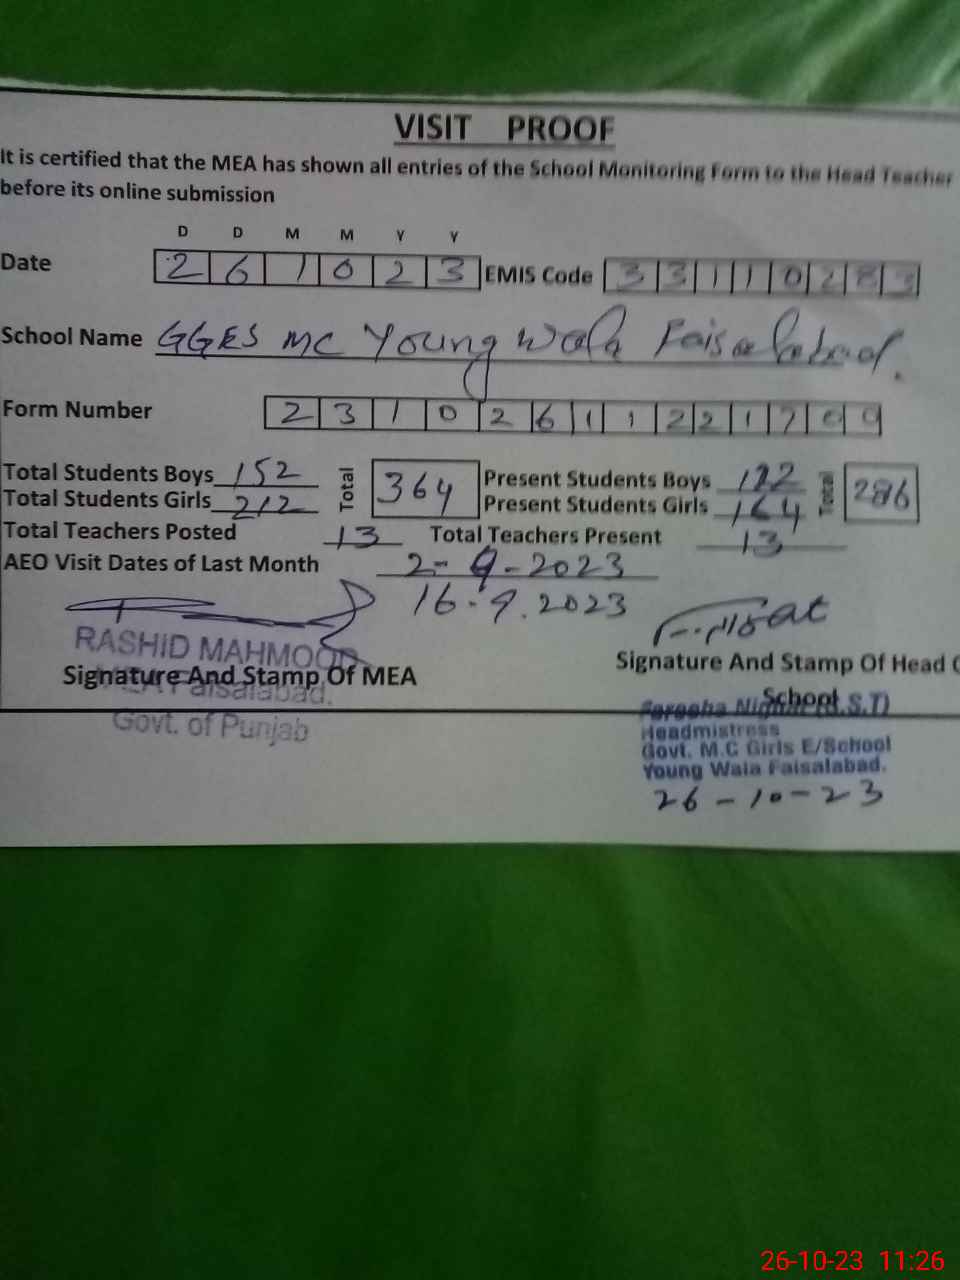 VISIT PROOF
It is certified that the MEA has shown all entries of the School Monitoring Form to the Head Teacher
before its online submission
D D M M Y Y
Date 2 6 1 0 2 3 EMIS Code 3 3 1 1 0 2 8 3
School Name GGES MC Young Wala Faisalabad.
Form Number 2 3 1 0 2 6 1 1 2 2 1 7 0 9
Total Students Boys 152 Total 364 Present Students Boys 122 Total 286
Total Students Girls 212 Present Students Girls 164
Total Teachers Posted 13 Total Teachers Present 13
AEO Visit Dates of Last Month 2-9-2023
16.9.2023
RASHID MAHMOOD
Signature And Stamp Of MEA Signature And Stamp Of Head O
MEA Faisalabad. School
Govt. of Punjab
(S.S.T)
Headmistress
Govt. M.C Girls E/School
Young Wala Faisalabad.
26-10-23
26-10-23 11:26